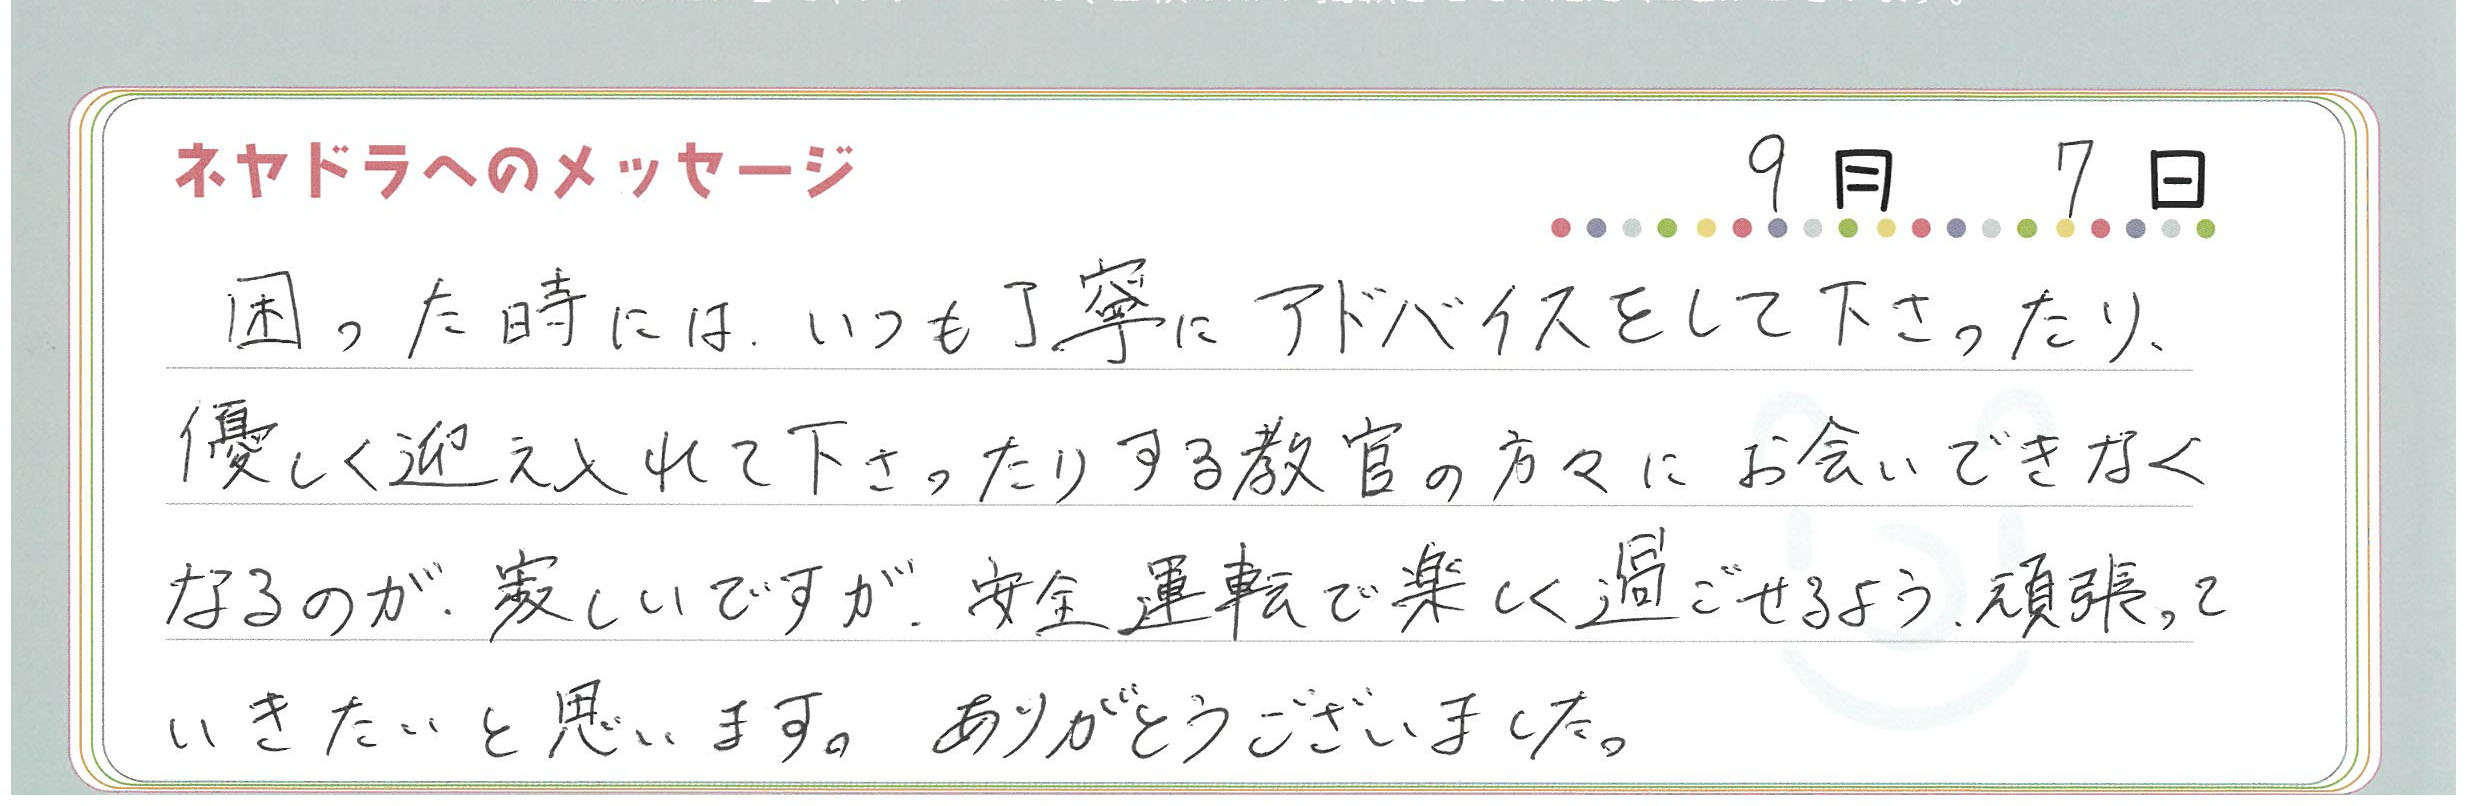 ネヤドラへのメッセージ 9月 7日
困った時には、いつも丁寧にアドバイスをして下さったり、
優しく迎え入れて下さったりする教官の方々にお会いできなく
なるのが、寂しいですが、安全運転で楽しく過ごせるよう、頑張って
いきたいと思います。ありがとうございました。